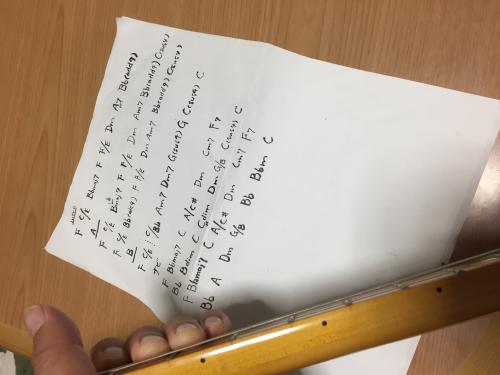 F C/E Bbmaj7 F F/E Dm A7 Bb(add9) C(sus4)
A
F C/E Bbmaj7 F F/E Dm Am7 Bb(add9) C(sus4)
F C/E Bb(add9) F F/E Dm Am7 Bb(add9) C(sus4)
B
F C/E C/Bb Am7 Dm7 G(sus4) G C(sus4) C
サビ
F Bbmaj7 C A/C# Dm Cm7 F7
Bb Bdim C C#dim Dm G/B C(sus4) C
F Bbmaj7 C A/C# Dm Cm7 F7
Bb A Dm G/B Bb Bbm C